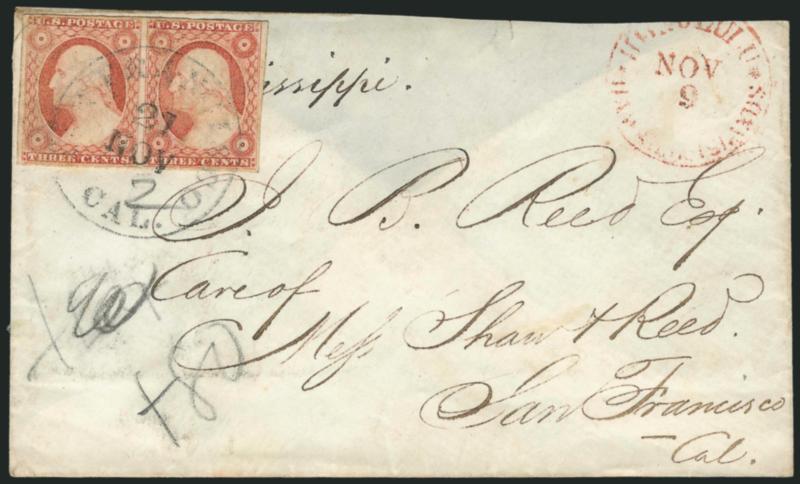 U.S. POSTAGE U.S. POSTAGE
THREE CENTS THREE CENTS
21
NOV
2
CAL.
issippi.
HONOLULU
NOV
9
J. B. Reed Esq.
Care of
Mess Shaw & Reed.
San Francisco
Cal.
80